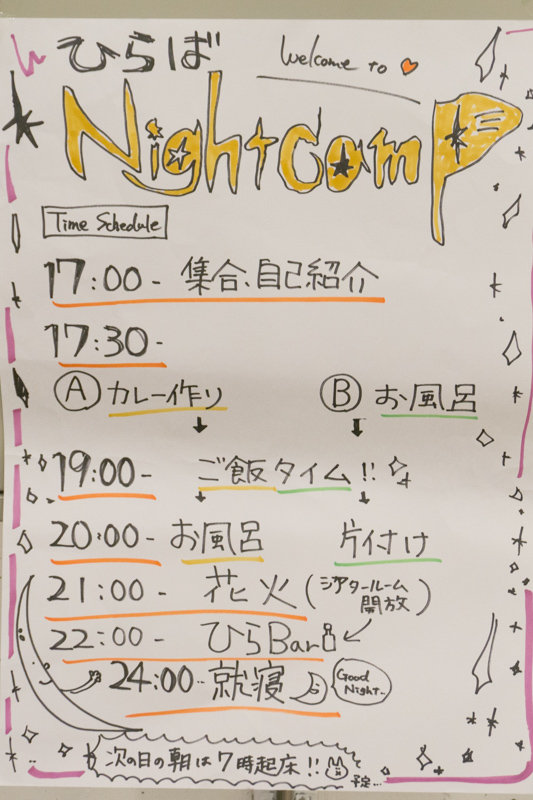 ひらば Welcome to
Nightcamp
Time Schedule
17:00- 集合、自己紹介
17:30-
Ⓐ カレー作り Ⓑ お風呂
19:00- ご飯タイム!!
20:00- お風呂 片付け
21:00- 花火 (シアタールーム開放)
22:00- ひらBar
24:00- 就寝 Good Night..
次の日の朝は7時起床!!
予定...